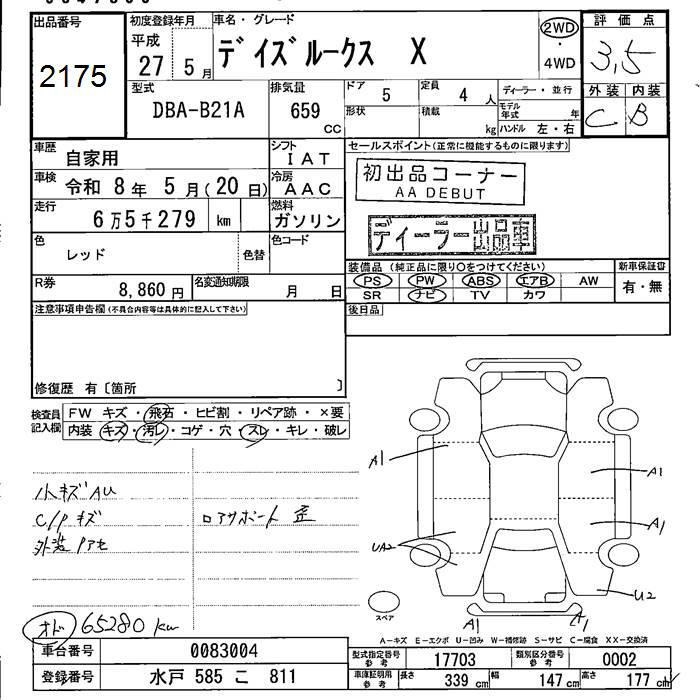 出品番号
2175
初度登録年月
平成
27 5月
車名・グレード
デイズルークス X
2WD
・
4WD
評価点
3,5
外装 内装
C B
型式
DBA-B21A
排気量
659
CC
ドア
5
定員
4 人
形状
積載
kg
ディーラー・並行
モデル年式 年
ハンドル 左・右
車歴
自家用
シフト
IAT
車検
令和 8年 5月(20日)
冷房
AAC
走行
6万5千279 km
燃料
ガソリン
色
レッド
色替
色コード
セールスポイント(正常に機能するものに限ります)
初出品コーナー
AA DEBUT
ディーラー出品車
装備品 (純正品に限り○をつけてください)
新車保証書
PS PW ABS エアB AW
SR ナビ TV カワ
有・無
R券
8,860 円
名変通知期限
月 日
後日品
注意事項申告欄(不具合内容等は具体的に記入して下さい)
修復歴 有〔箇所 〕
検査員
記入欄
FW キズ・飛石・ヒビ割・リペア跡・×要
内装 キズ・汚レ・コゲ・穴・スレ・キレ・破レ
小キズAU
C/Pキズ
ロアサポート歪
外装Pアセ
オド 65280km
A1
A1
A1
UA2
U2
A1
A1
スペア
A-キズ E-エクボ U-凹み W-補修跡 S-サビ C-腐食 XX-交換済
車台番号
0083004
登録番号
水戸 585 こ 811
型式指定番号
参考
17703
類別区分番号
参考
0002
車庫証明用
参考
長さ
339 cm
幅
147 cm
高さ
177 cm